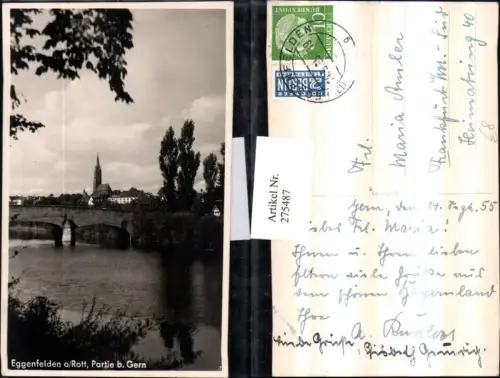 Eggenfelden a/Rott, Partie b. Gern
Artikel Nr.
275487
DEUTSCHE BUNDESPOST
10
NOTOPFER
2 BERLIN
STEUERMARKE
FELDEN
b
Frl.
Maria Amler
Frankfurt M.-Süd
Heimatring 40
68
Gern, den 14. Sept. 55
Liebes Frl. Maria!
Ihnen u. Ihren lieben
Eltern viele Grüße aus
dem schönen Bayernland
Ihre
A.